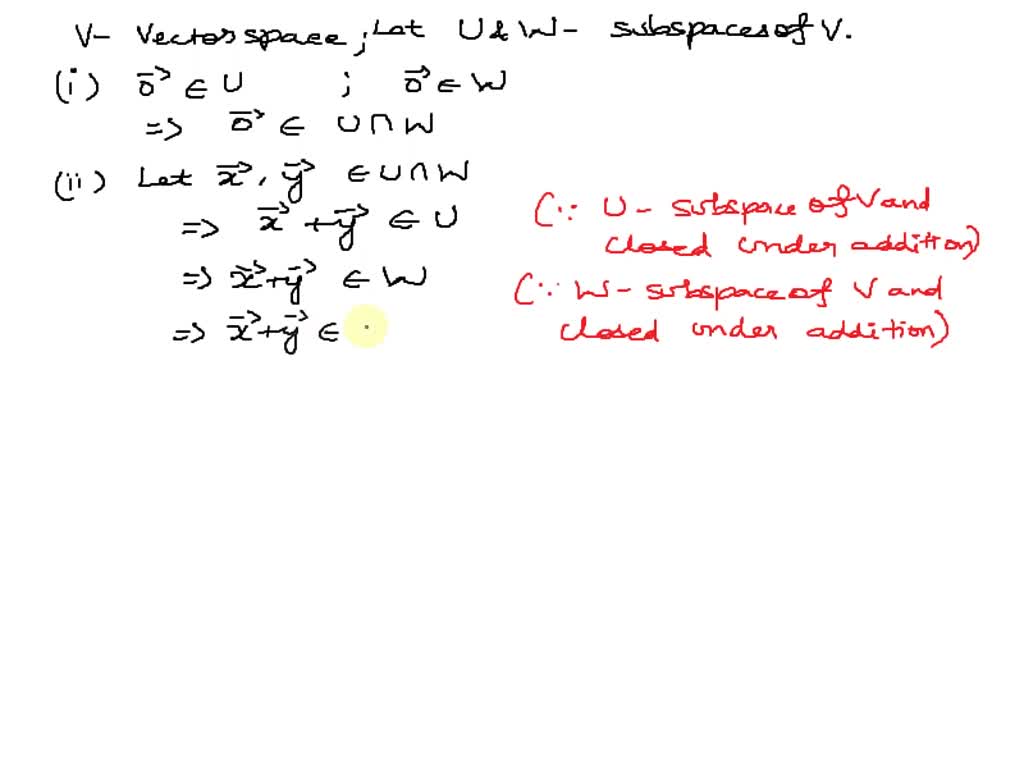 V- Vector space; Let U & W - subspaces of V.
(i) 0⃗ ∈ U ; 0⃗ ∈ W
=> 0⃗ ∈ U∩W
(ii) Let x⃗, y⃗ ∈ U∩W
=> x⃗+y⃗ ∈ U (∵ U - subspace of V and
closed under addition)
=> x⃗+y⃗ ∈ W (∵ W - subspace of V and
=> x⃗+y⃗ ∈ closed under addition)